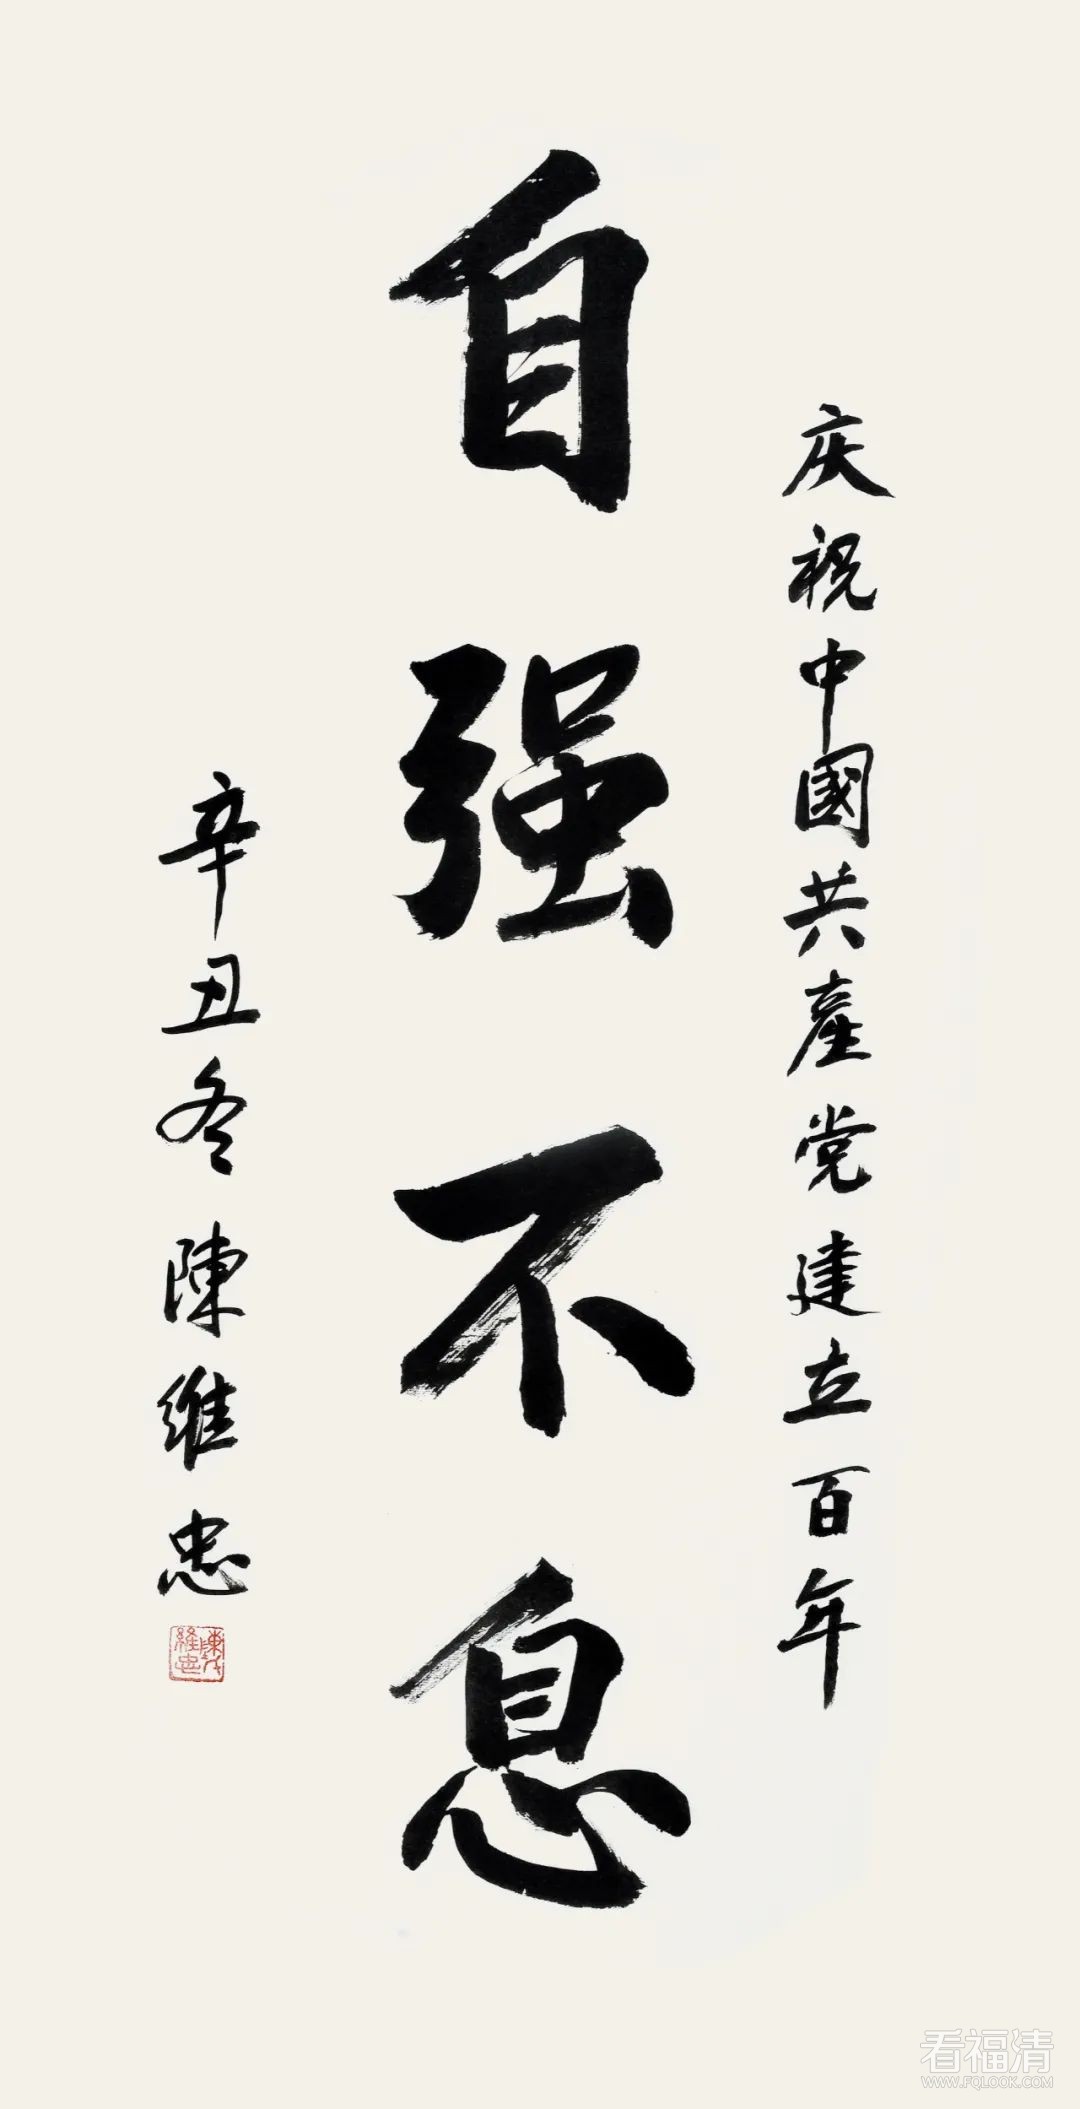 庆祝中國共產党建立百年
自强不息
辛丑冬 陳維忠
陳維忠
看福清
WWW.FQLOOK.COM